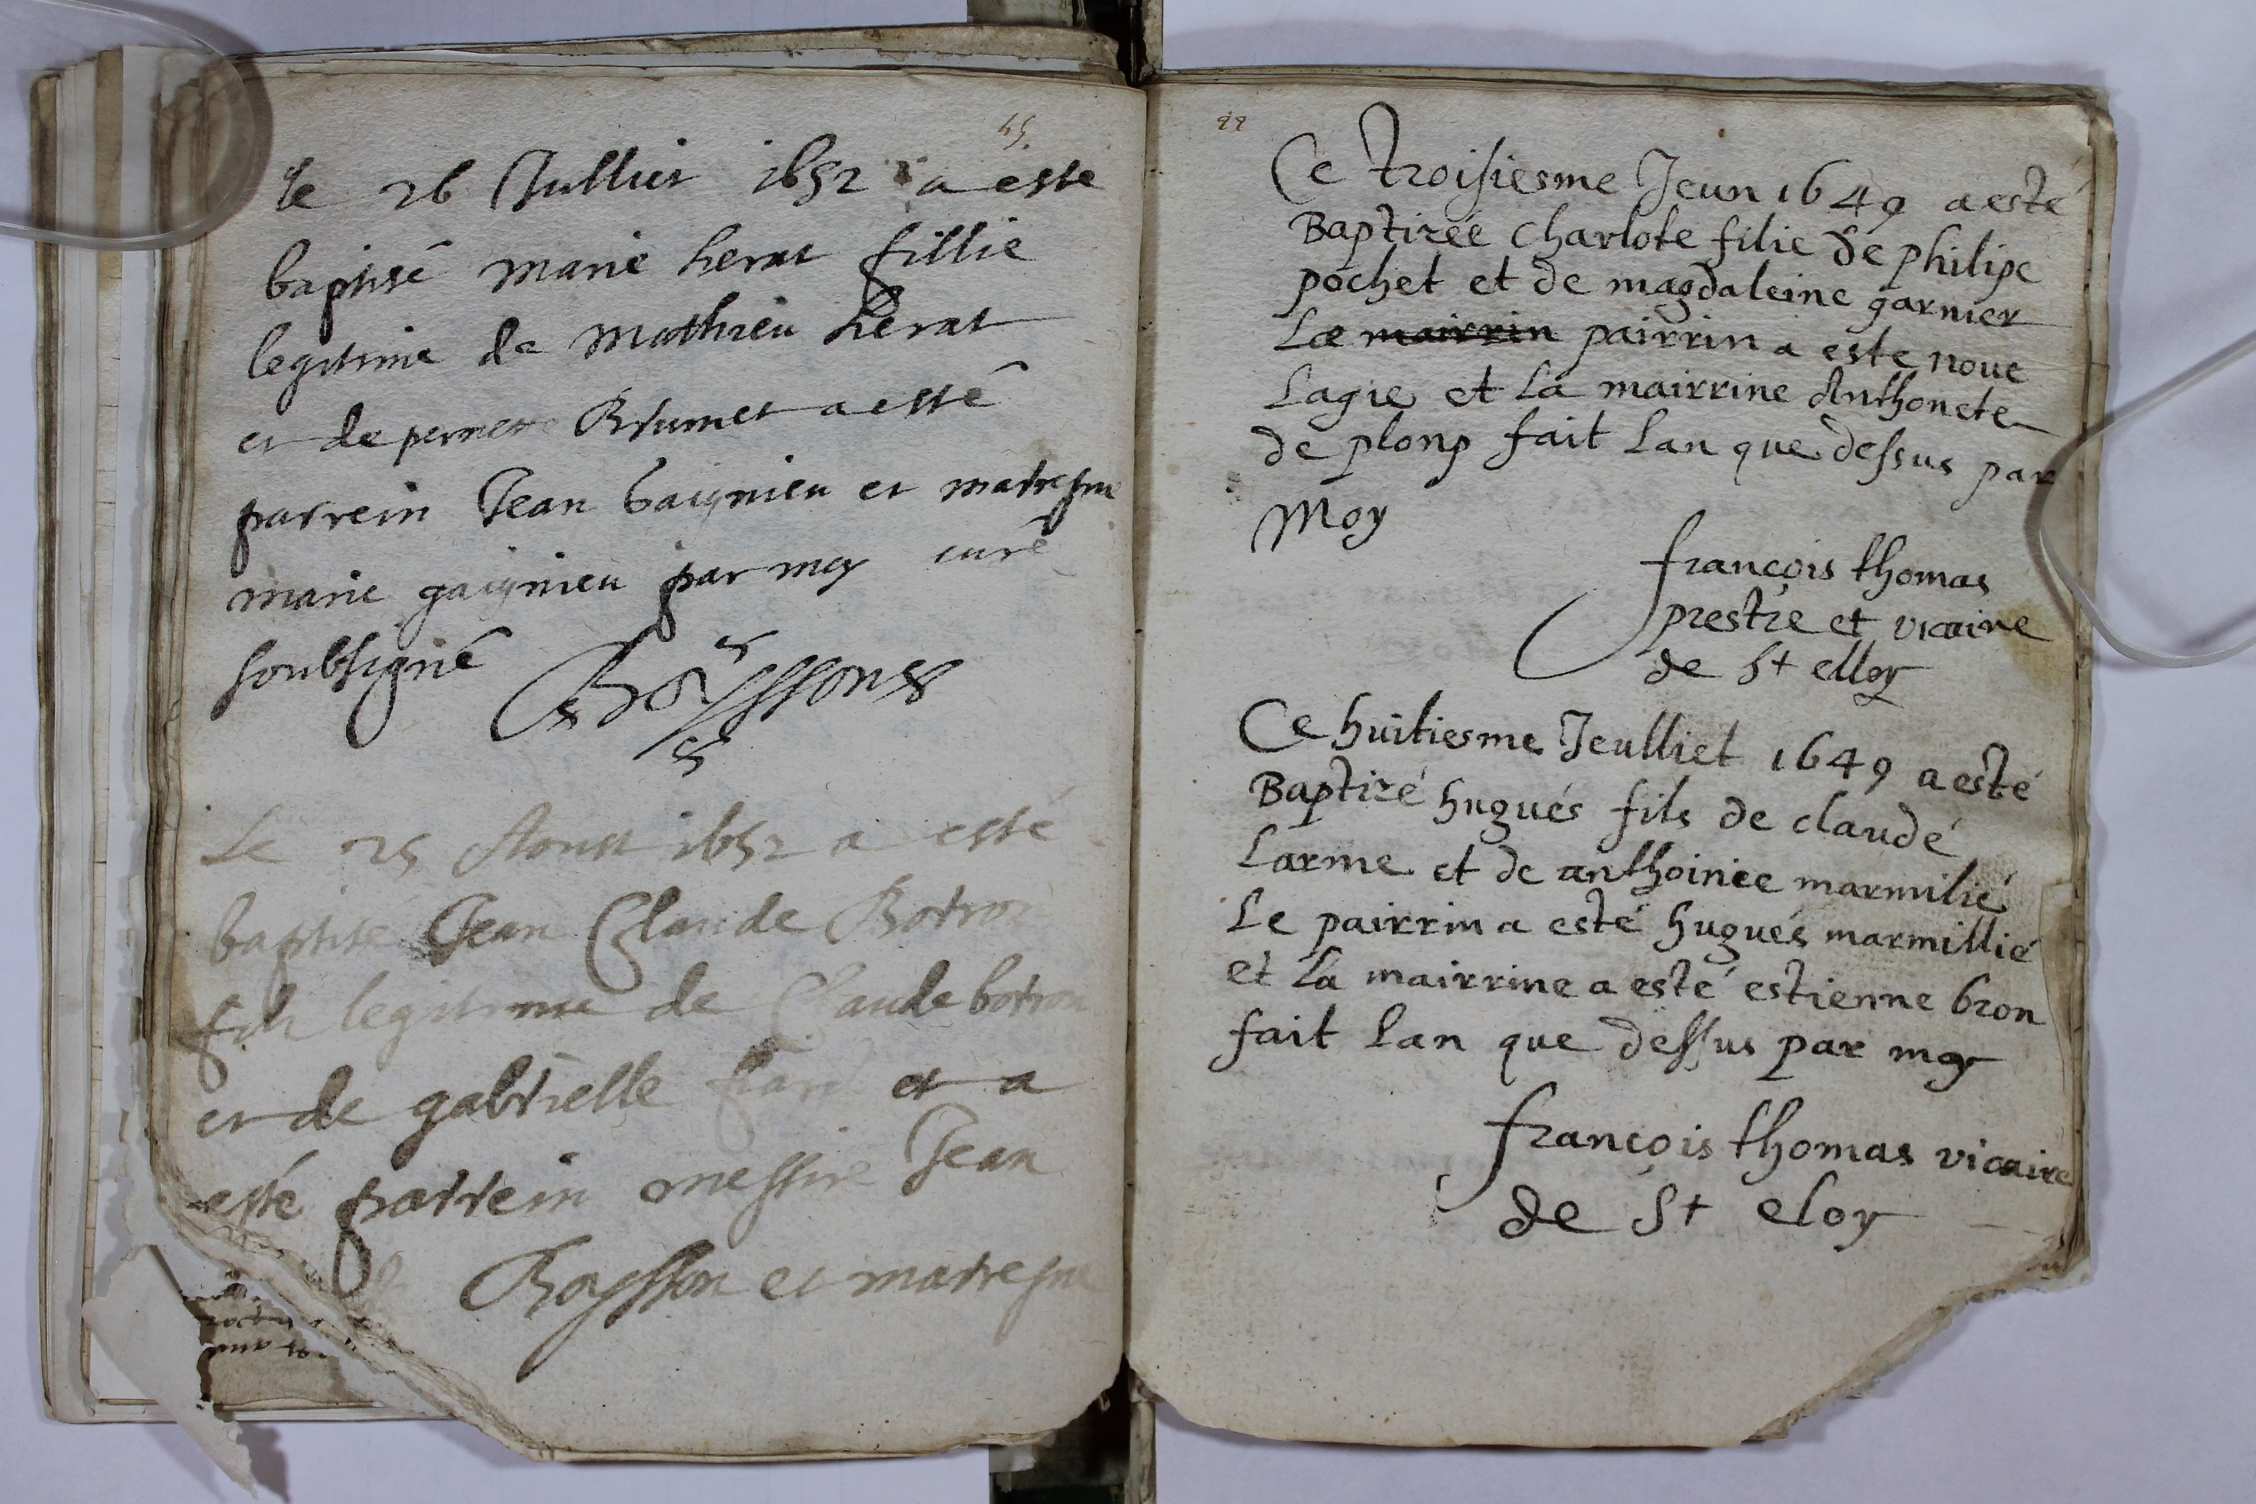 45
le 26 Julliet 1652 a este
baptisé marie herat fillie
legitime de Mathieu herat
et de pernete Brumet a esté
parrein Jean gaignieu et matregne
marie gaignieu par moy curé
soubsigné Boyssons
Le 25 Aoust 1652 a esté
baptisé Jean Claude Botron
fils legitime de Claude botron
et de gabrielle et a
esté parrein messire Jean
Boysson et matregne
Ce troisiesme Jeun 1649 a esté
Baptizée Charlote filie de philipe
pochet et de magdaleine garnier
Le mairrin pairrin a este noue
Lagie et la mairrine Anthonete
de plong fait Lan que dessus par
Moy
françois thomas
prestre et vicaire
de St elloy
Ce huitiesme Jeulliet 1649 a esté
Baptizé hugués fils de claudé
Larme et de anthoinee marmilié
Le pairrin a esté hugués marmillié
et la mairrine a esté estienne bron
fait Lan que dessus par moy
françois thomas vicaire
de St eloy